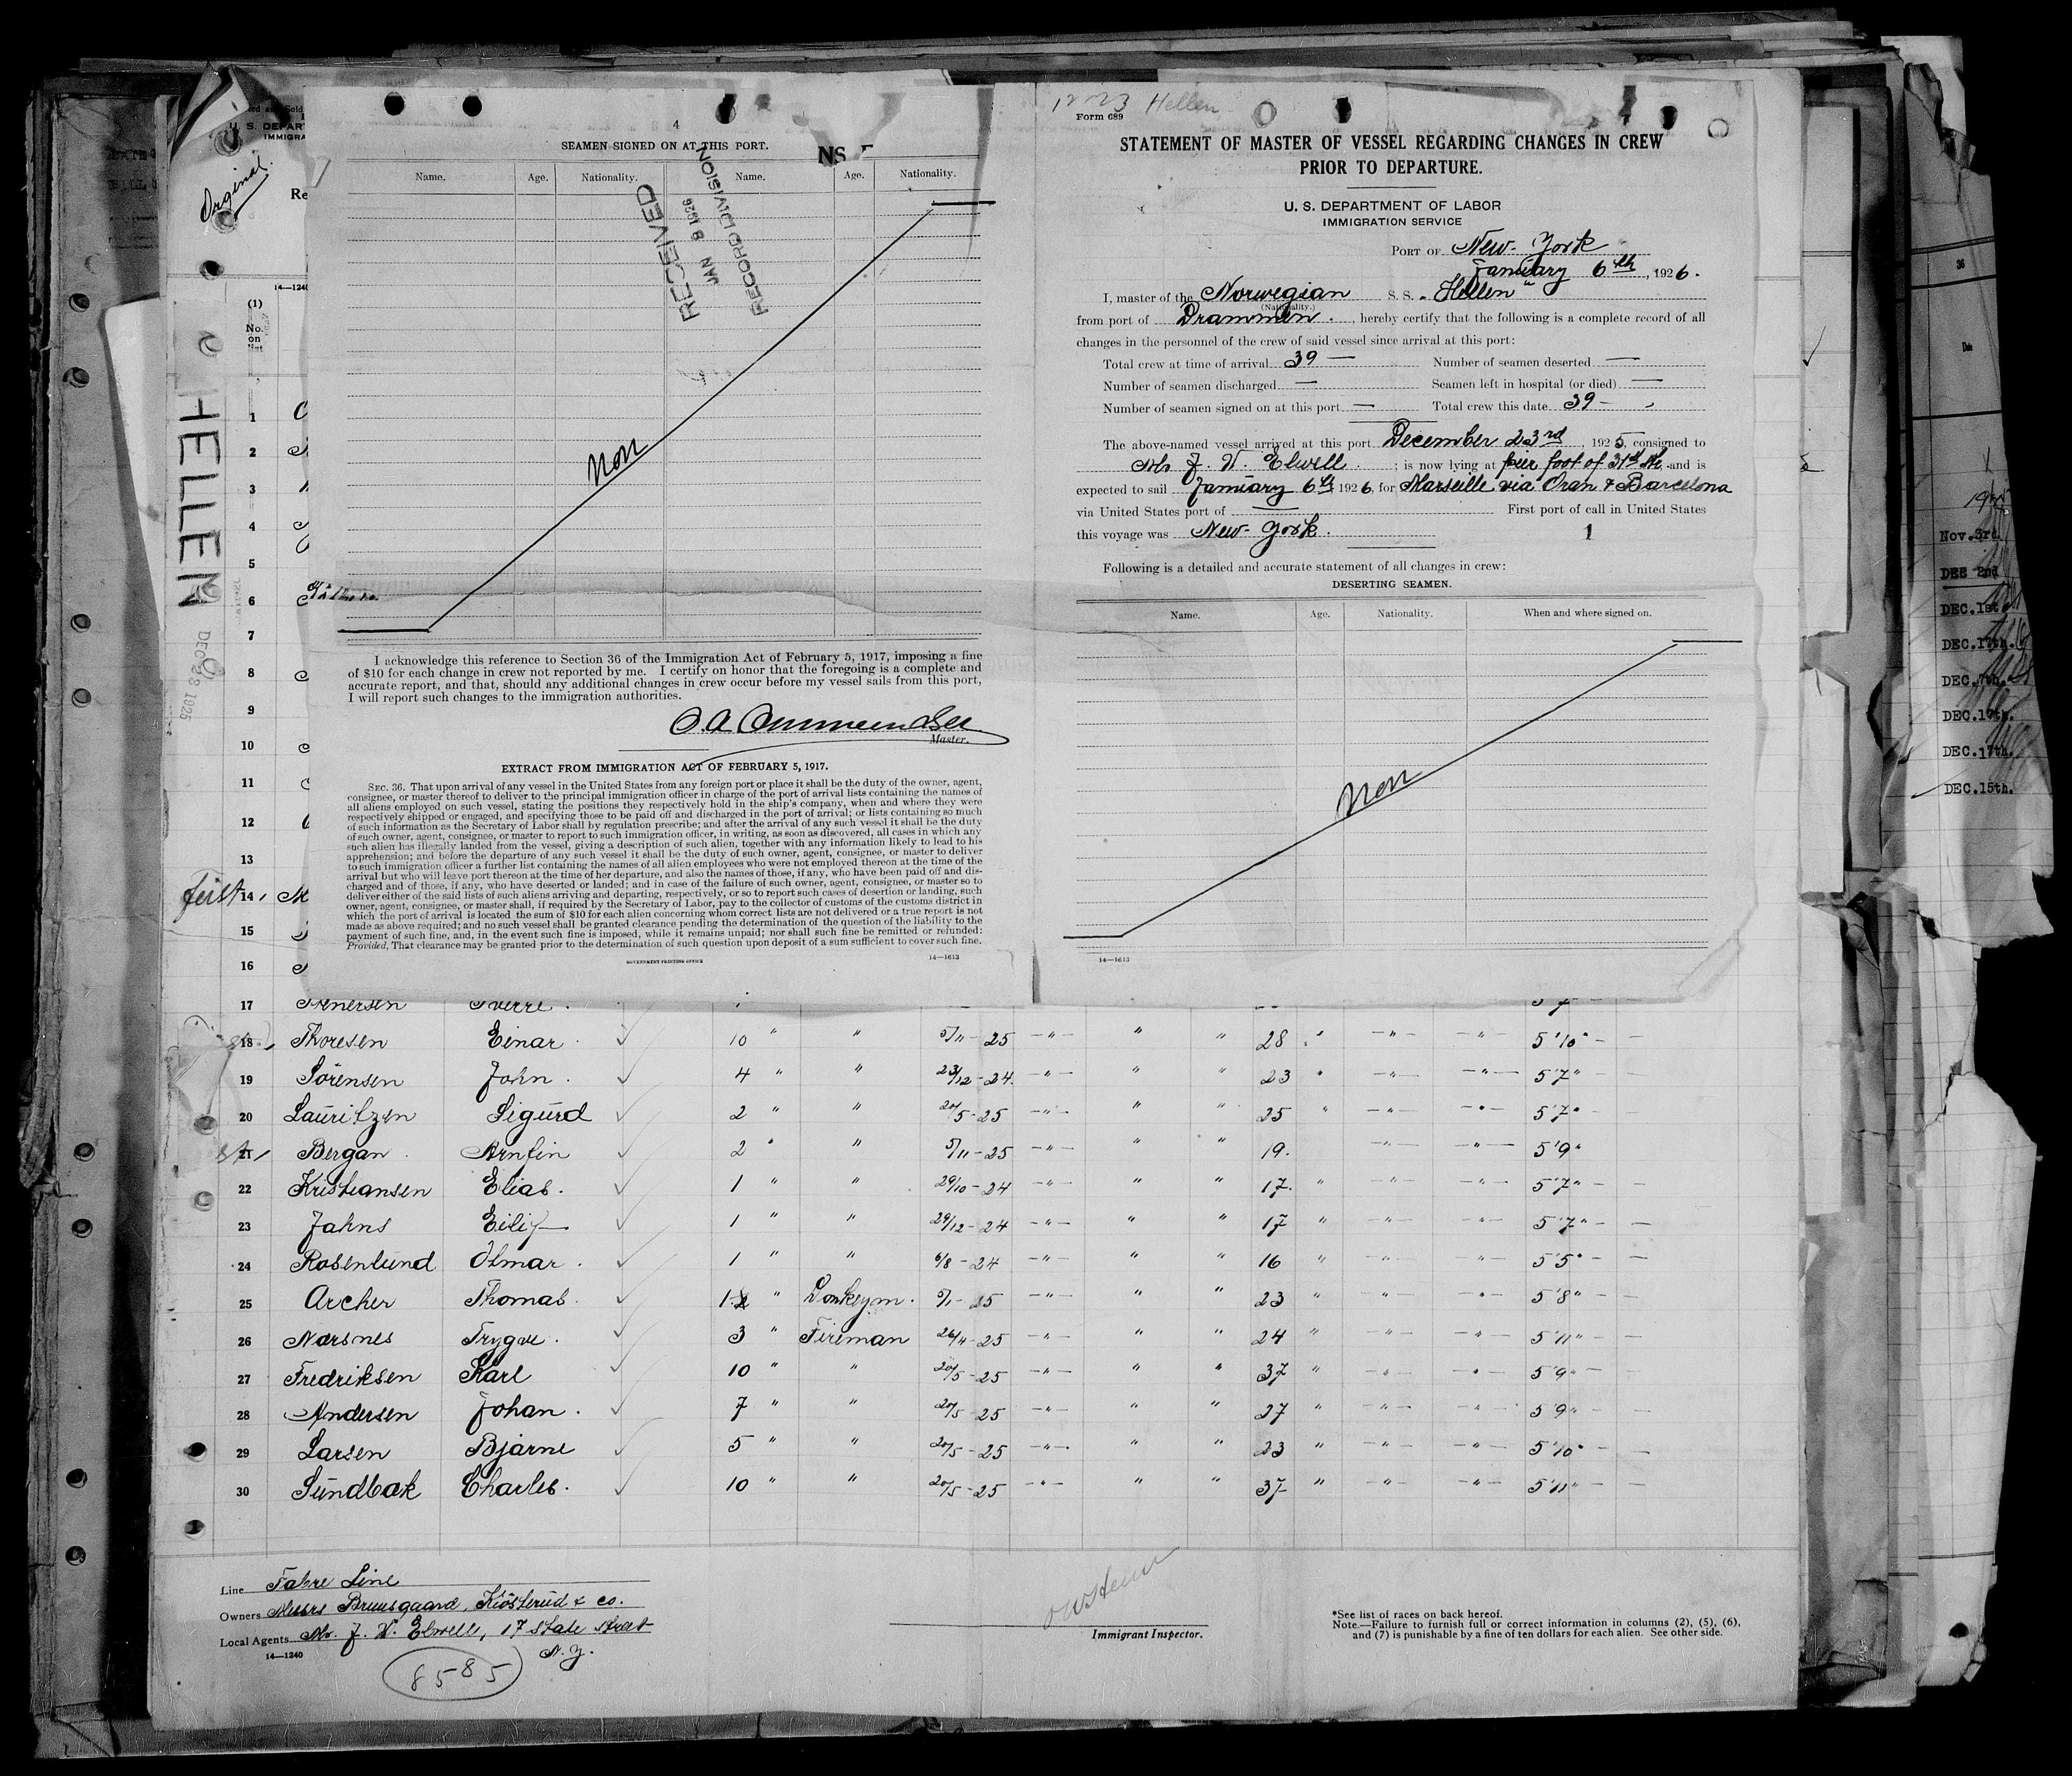 12023 Hellen
Form 689
STATEMENT OF MASTER OF VESSEL REGARDING CHANGES IN CREW
PRIOR TO DEPARTURE.
U. S. DEPARTMENT OF LABOR
IMMIGRATION SERVICE
PORT OF New-York
January 6th, 1926.
I, master of the Norwegian S. S. "Hellen"
(Nationality.)
from port of Drammen., hereby certify that the following is a complete record of all
changes in the personnel of the crew of said vessel since arrival at this port:
Total crew at time of arrival 39 — Number of seamen deserted —
Number of seamen discharged — Seamen left in hospital (or died) —
Number of seamen signed on at this port — Total crew this date 39 —
The above-named vessel arrived at this port December 23rd, 1925, consigned to
J. W. Elwell; is now lying at pier foot of 31st St. and is
expected to sail January 6th 1926, for Marseille via Oran & Barcelona
via United States port of — First port of call in United States
this voyage was New-York. 1
Following is a detailed and accurate statement of all changes in crew:
DESERTING SEAMEN.
Name. Age. Nationality. When and where signed on.
non
14—1613
4
SEAMEN SIGNED ON AT THIS PORT.
Name. Age. Nationality. Name. Age. Nationality.
RECEIVED
JAN 8 1926
RECORD DIVISION
non
I acknowledge this reference to Section 36 of the Immigration Act of February 5, 1917, imposing a fine
of $10 for each change in crew not reported by me. I certify on honor that the foregoing is a complete and
accurate report, and that, should any additional changes in crew occur before my vessel sails from this port,
I will report such changes to the immigration authorities.
Master.
EXTRACT FROM IMMIGRATION ACT OF FEBRUARY 5, 1917.
SEC. 36. That upon arrival of any vessel in the United States from any foreign port or place it shall be the duty of the owner, agent,
consignee, or master thereof to deliver to the principal immigration officer in charge of the port of arrival lists containing the names of
all aliens employed on such vessel, stating the positions they respectively hold in the ship's company, when and where they were
respectively shipped or engaged, and specifying those to be paid off and discharged in the port of arrival; or lists containing so much
of such information as the Secretary of Labor shall by regulation prescribe; and after the arrival of any such vessel it shall be the duty
of such owner, agent, consignee, or master to report to such immigration officer, in writing, as soon as discovered, all cases in which any
such alien has illegally landed from the vessel, giving a description of such alien, together with any information likely to lead to his
apprehension; and before the departure of any such vessel it shall be the duty of such owner, agent, consignee, or master to deliver
to such immigration officer a further list containing the names of all alien employees who were not employed thereon at the time of the
arrival but who will leave port thereon at the time of her departure, and also the names of those, if any, who have been paid off and dis-
charged and of those, if any, who have deserted or landed; and in case of the failure of such owner, agent, consignee, or master so to
deliver either of the said lists of such aliens arriving and departing, respectively, or so to report such cases of desertion or landing, such
owner, agent, consignee, or master shall, if required by the Secretary of Labor, pay to the collector of customs of the customs district in
which the port of arrival is located the sum of $10 for each alien concerning whom correct lists are not delivered or a true report is not
made as above required; and no such vessel shall be granted clearance pending the determination of the question of the liability to the
payment of such fine, and, in the event such fine is imposed, while it remains unpaid; nor shall such fine be remitted or refunded:
Provided, That clearance may be granted prior to the determination of such question upon deposit of a sum sufficient to cover such fine.
GOVERNMENT PRINTING OFFICE
14—1613
Orginal.
U. S. DEPAR
IMMIGRA
Re
14—1240
(1)
No.
on
list
HELLEN
DEC 23 1925
1
2
3
4
5
6
7
8
9
10
11
12
13
14
15
16
17 Sverre.
18 Thoresen Einar. 10 " " 5/11-25 -"- " " 28 " -"- -"- 5'10" -
19 Sörensen John. 4 " " 23/12-24 -"- " " 23 " -"- -"- 5'7" -
20 Lauritzen Sigurd 2 " " 20/5-25 -"- " " 25 " -"- -"- 5'7" -
21 Bergan Arnfin 2 " " 5/11-25 -"- " " 19. -"- -"- 5'9"
22 Kristiansen Elias. 1 " " 29/10-24 -"- " " 17. " -"- -"- 5'7" -
23 Jahns Eilif 1 " " 29/12-24 -"- " " 17 " -"- -"- 5'7" -
24 Rosenlund Otmar. 1 " " 6/8-24 -"- " " 16 " -"- -"- 5'5" -
25 Archer Thomas. " Donkeym. 25 -"- " " 23 " -"- -"- 5'8" -
26 Nærsnes Trygve. 3 " Fireman 26/11-25 -"- " " 24 " -"- -"- 5'11" -
27 Fredriksen Karl 10 " " 20/5-25 -"- " " 37 " -"- -"- 5'9" -
28 Andersen Johan. 7 " " 20/5-25 -"- " " 27 " -"- -"- 5'9" -
29 Larsen Bjarne 5 " " 20/5-25 -"- " " 23 " -"- -"- 5'10" -
30 Sundbak Charles. 10 " " 20/5-25 -"- " " 37 " -"- -"- 5'11" -
Line Fabre Line
Owners Messrs Bruusgaard, Kiösterud & co.
Local Agents J. W. Elwell, 17 State Street
N.Y.
14—1240
8585
Immigrant Inspector.
*See list of races on back hereof.
Note.—Failure to furnish full or correct information in columns (2), (5), (6),
and (7) is punishable by a fine of ten dollars for each alien. See other side.
36
Date
Nov.3rd.
DEC 2nd
DEC.1st
DEC.17th.
DEC.7th.
DEC.17th.
DEC.17th.
DEC.15th.